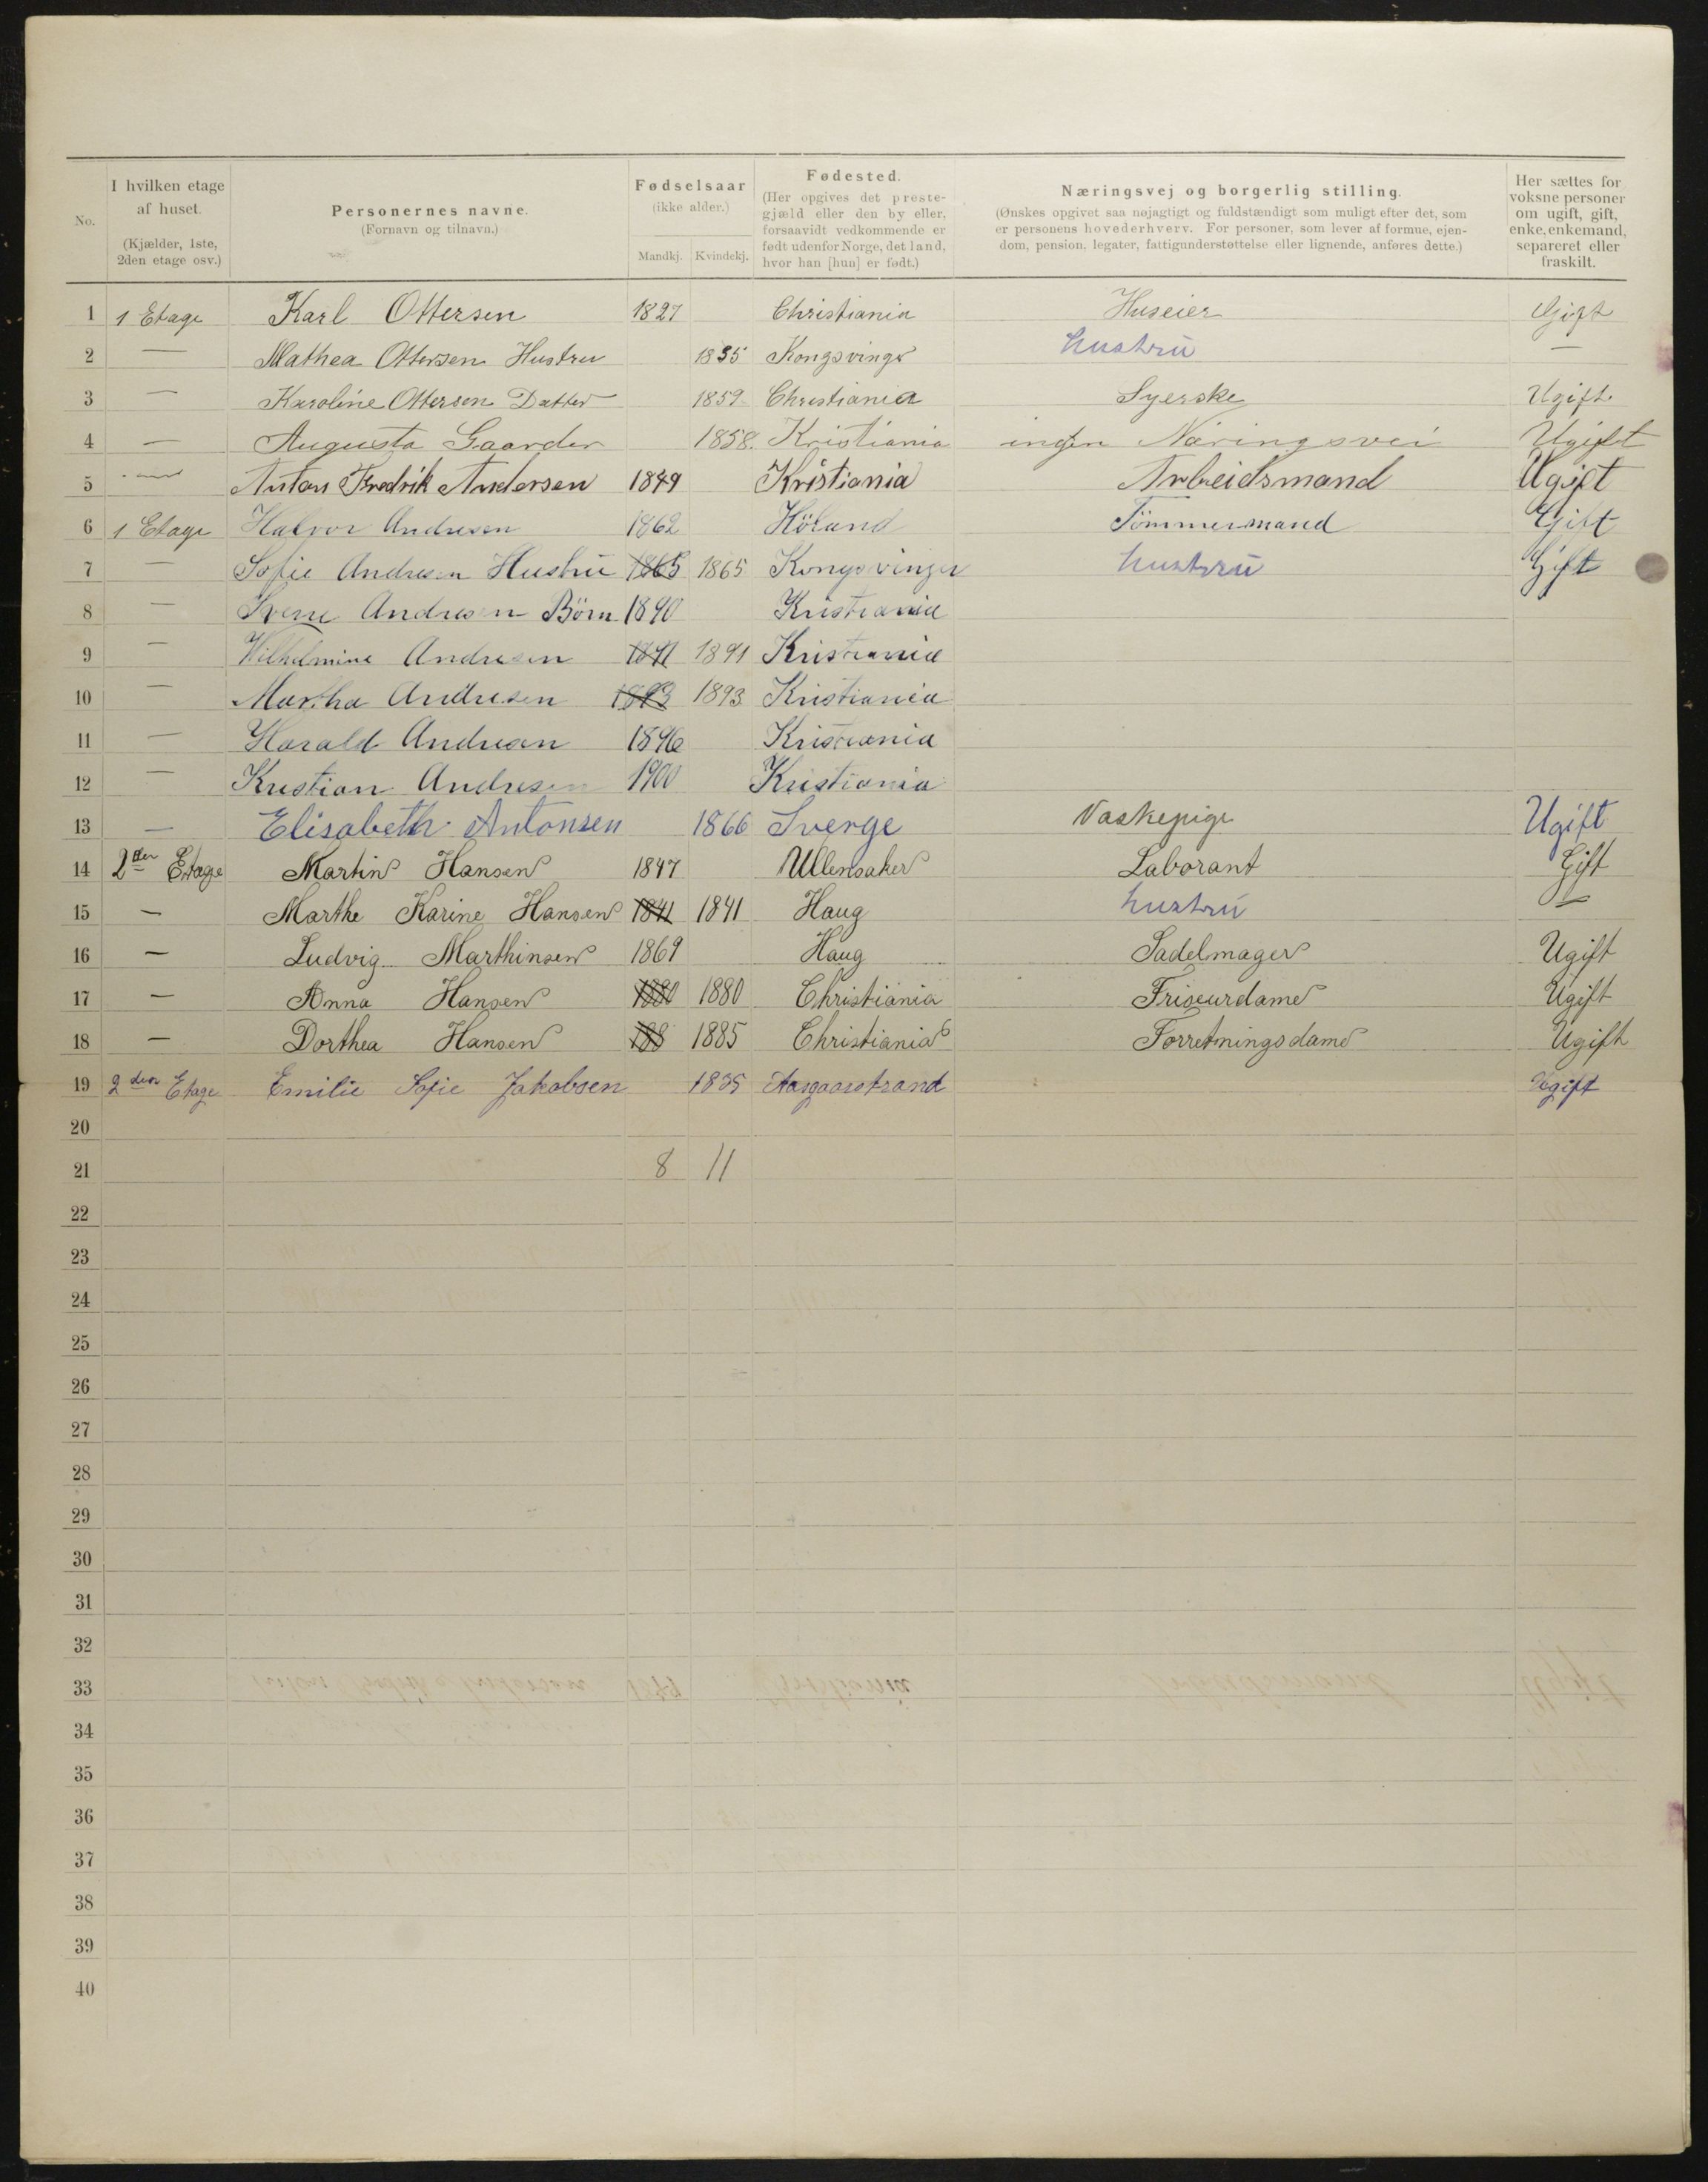 No.
I hvilken etage af huset. (Kjælder, 1ste, 2den etage osv.)
Personernes navne. (Fornavn og tilnavn.)
Fødselsaar (ikke alder.) Mandkj. Kvindekj.
Fødested. (Her opgives det prestegjæld eller den by eller, forsaavidt vedkommende er født udenfor Norge, det land, hvor han [hun] er født.)
Næringsvej og borgerlig stilling. (Ønskes opgivet saa nøjagtigt og fuldstændigt som muligt efter det, som er personens hovederhverv. For personer, som lever af formue, ejendom, pension, legater, fattigunderstøttelse eller lignende, anføres dette.)
Her sættes for voksne personer om ugift, gift, enke, enkemand, separeret eller fraskilt.
1 1 Etage Karl Ottersen 1827 Christiania Huseier Gift
2 — Mathea Ottersen Hustru 1835 Kongsvinger hustrü —
3 — Karoline Ottersen Datter 1859 Christiania Syerske Ugift
4 — Augusta Gaarder 1858. Kristiania ingen Næringsvei Ugift
5 — Anton Fredrik Andersen 1849 Kristiania Arbeidsmand Ugift
6 1 Etage Halvor Andresen 1862 Höland Tömmermand Gift
7 — Sofie Andresen Hustrü 1865 1865 Kongsvinger hustrü Gift
8 — Sverre Andresen Börn 1890 Kristiania
9 — Wilhelmine Andresen 1891 1891 Kristiania
10 — Martha Andresen 1893 1893 Kristiania
11 — Harald Andresen 1896 Kristiania
12 — Kristian Andresen 1900 Kristiania
13 — Elisabeth Antonsen 1866 Sverge Vaskepige Ugift
14 2den Etage Martin Hansen 1847 Ullensaker Laborant Gift
15 — Marthe Karine Hansen 1841 1841 Haug hustrü —
16 — Ludvig Marthinsen 1869 Haug Sadelmager Ugift
17 — Anna Hansen 1880 1880 Christiania Friseurdame Ugift
18 — Dorthea Hansen 188 1885 Christiania Forretningsdame Ugift
19 2den Etage Emilie Sofie Jakobsen 1835 Aasgaarstrand Ugift
20
21 8 11
22
23
24
25
26
27
28
29
30
31
32
33
34
35
36
37
38
39
40